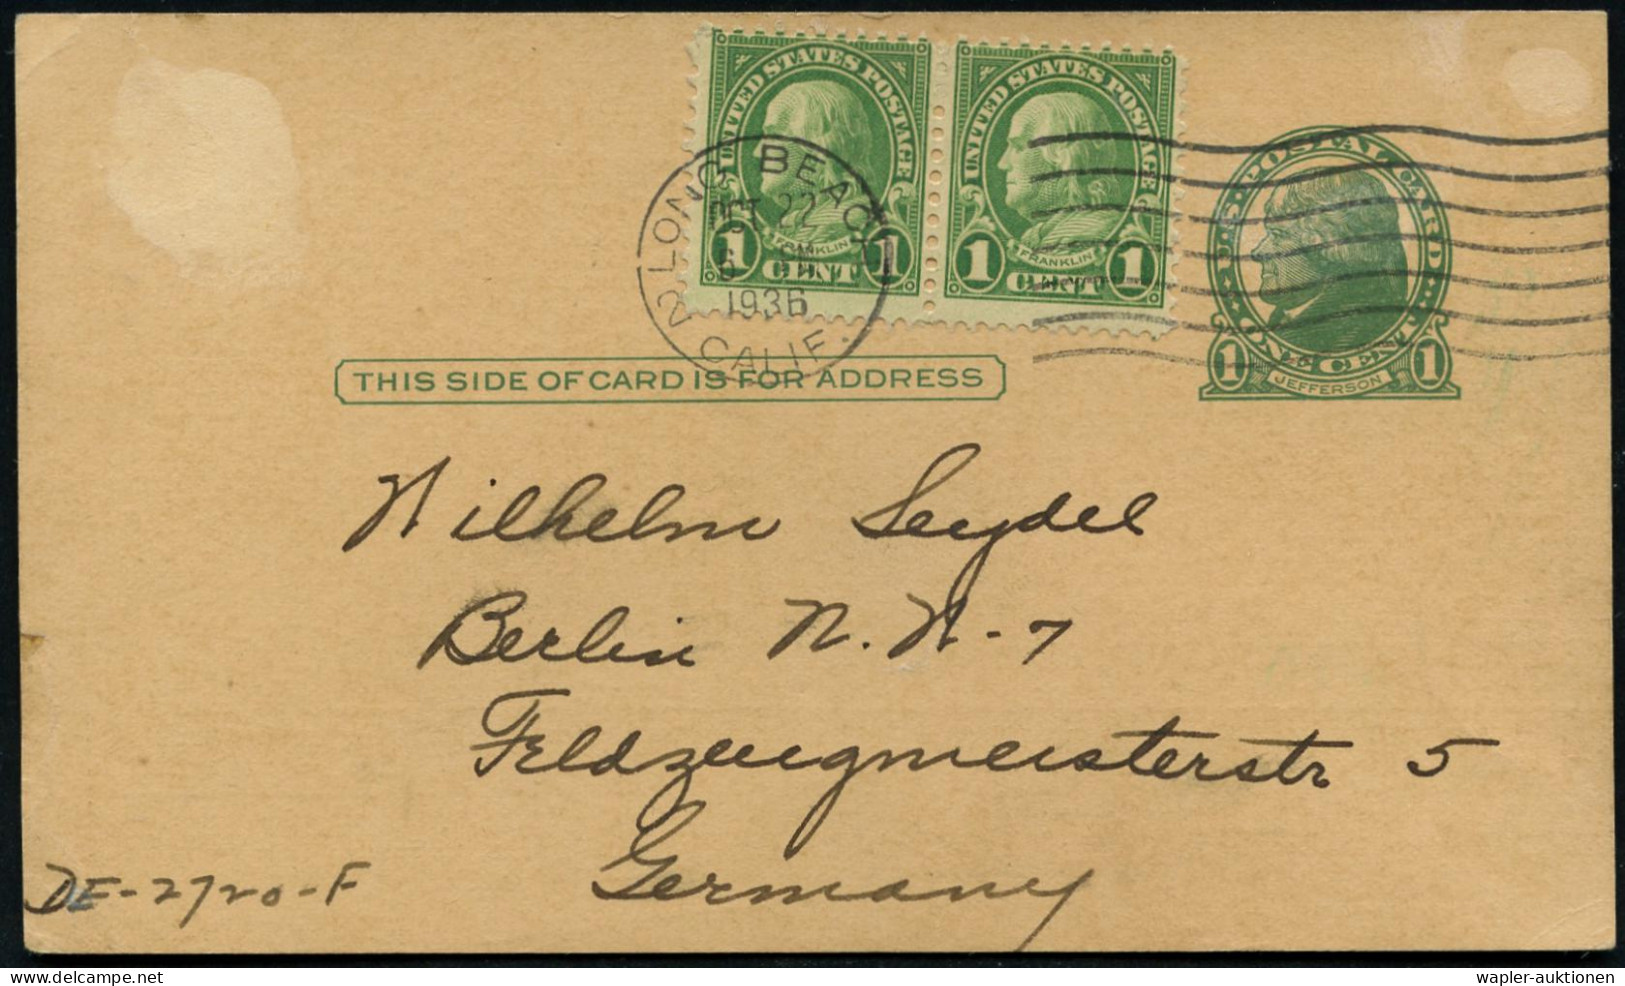 UNITED STATES POSTAGE
FRANKLIN
1 CENT 1
UNITED STATES POSTAGE
FRANKLIN
1 CENT 1
U.S. POSTAL CARD
1 ONE CENT 1
JEFFERSON
LONG BEACH
OCT 22
1936
2 CALIF.
THIS SIDE OF CARD IS FOR ADDRESS
Wilhelm Seydel
Berlin N.W-7
Feldzeugmeisterstr 5
Germany
DE-2720-F
delcampe.net
wapler-auktionen